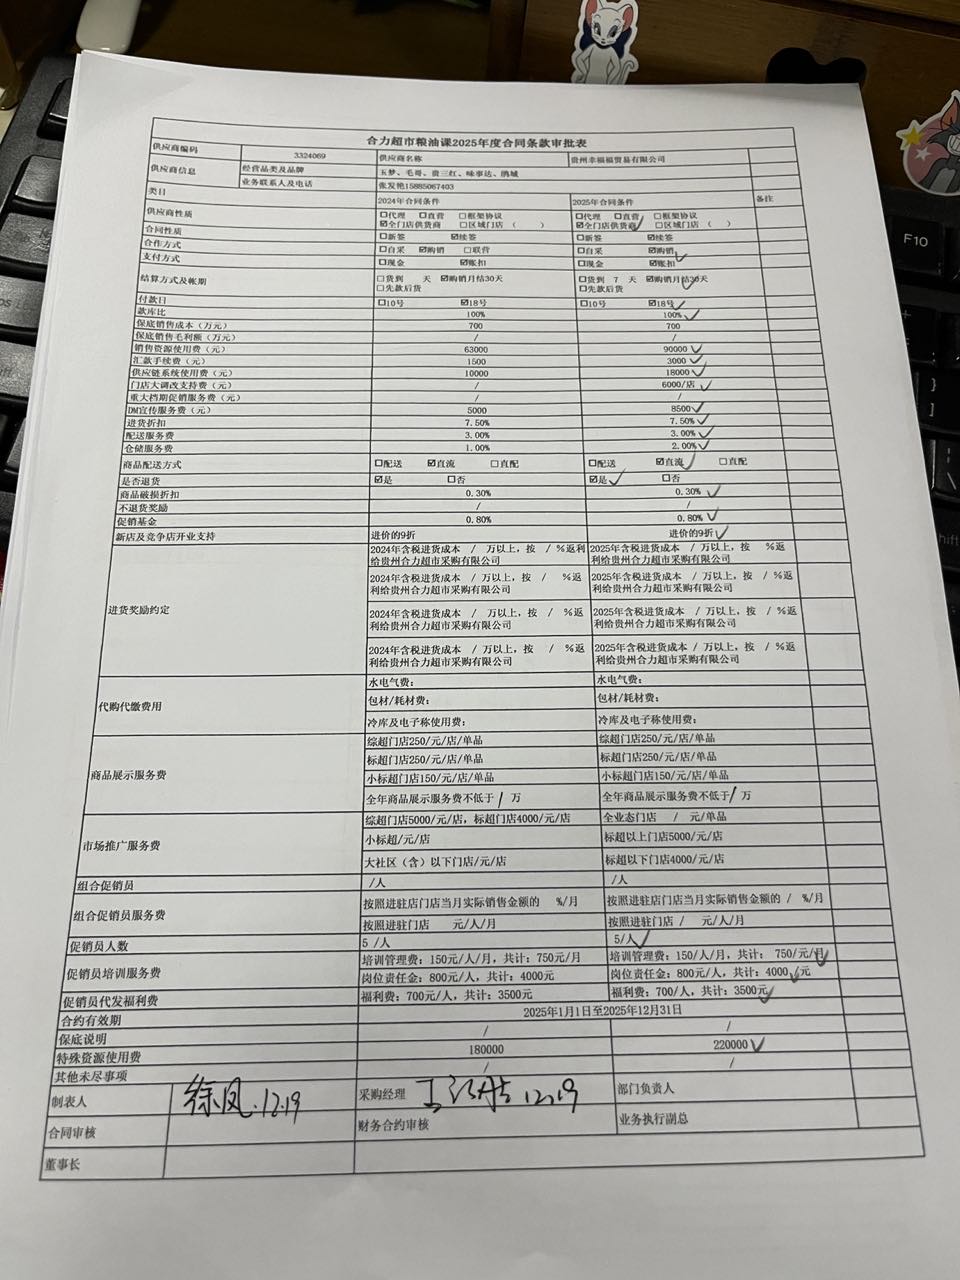 合力超市粮油课2025年度合同条款审批表
供应商编码 3324069 供应商名称 贵州幸福福贸易有限公司
供应商信息 经营品类及品牌 玉梦、毛哥、贵三红、味事达、鹃城
业务联系人及电话 张发艳15885067403
类目 2024年合同条件 2025年合同条件 备注
供应商性质 □代理 □直营 □框架协议 □代理 □直营 □框架协议
☑全门店供货商 □区域门店（ ） ☑全门店供货商 □区域门店（ ）
合同性质 □新签 ☑续签 □新签 ☑续签
合作方式 □自采 ☑购销 □联营 □自采 ☑购销
支付方式 □现金 ☑账扣 □现金 ☑账扣
结算方式及帐期 □货到 天 ☑购销月结30天 □货到 7 天 ☑购销月结30天
□先款后货 □先款后货
付款日 □10号 ☑18号 □10号 ☑18号
款库比 100% 100%
保底销售成本（万元） 700 700
保底销售毛利额（万元） / /
销售资源使用费（元） 63000 90000
汇款手续费（元） 1500 3000
供应链系统使用费（元） 10000 18000
门店大调改支持费（元） / 6000/店
重大档期促销服务费（元） / /
DM宣传服务费（元） 5000 8500
进货折扣 7.50% 7.50%
配送服务费 3.00% 3.00%
仓储服务费 1.00% 2.00%
商品配送方式 □配送 ☑直流 □直配 □配送 ☑直流 □直配
是否退货 ☑是 □否 ☑是 □否
商品破损折扣 0.30% 0.30%
不退货奖励 / /
促销基金 0.80% 0.80%
新店及竞争店开业支持 进价的9折 进价的9折
进货奖励约定 2024年含税进货成本 / 万以上，按 / %返利给贵州合力超市采购有限公司 2025年含税进货成本 / 万以上，按 %返利给贵州合力超市采购有限公司
2024年含税进货成本 / 万以上，按 / %返利给贵州合力超市采购有限公司 2025年含税进货成本 / 万以上，按 / %返利给贵州合力超市采购有限公司
2024年含税进货成本 / 万以上，按 / %返利给贵州合力超市采购有限公司 2025年含税进货成本 / 万以上，按 / %返利给贵州合力超市采购有限公司
2024年含税进货成本 / 万以上，按 / %返利给贵州合力超市采购有限公司 2025年含税进货成本 / 万以上，按 / %返利给贵州合力超市采购有限公司
代购代缴费用 水电气费： 水电气费：
包材/耗材费： 包材/耗材费：
冷库及电子称使用费： 冷库及电子称使用费：
商品展示服务费 综超门店250/元/店/单品 综超门店250/元/店/单品
标超门店250/元/店/单品 标超门店250/元/店/单品
小标超门店150/元/店/单品 小标超门店150/元/店/单品
全年商品展示服务费不低于 / 万 全年商品展示服务费不低于 / 万
市场推广服务费 综超门店5000/元/店，标超门店4000/元/店 全业态门店 / 元/单品
小标超/元/店 标超以上门店5000/元/店
大社区（含）以下门店/元/店 标超以下门店4000/元/店
组合促销员 /人 /人
组合促销员服务费 按照进驻店门店当月实际销售金额的 %/月 按照进驻店门店当月实际销售金额的 / %/月
按照进驻门店 元/人/月 按照进驻门店 / 元/人/月
促销员人数 5 /人 5/人
促销员培训服务费 培训管理费：150元/人/月，共计：750元/月 培训管理费：150/人/月，共计： 750/元/月
岗位责任金：800元/人，共计：4000元 岗位责任金：800元/人，共计：4000 元
促销员代发福利费 福利费：700元/人，共计：3500元 福利费：700/人，共计：3500元
合约有效期 2025年1月1日至2025年12月31日
保底说明 / /
特殊资源使用费 180000 220000
其他未尽事项 / /
制表人 徐凤.12.19 采购经理 12.19 部门负责人
合同审核 财务合约审核 业务执行副总
董事长
F10
}
]
shift